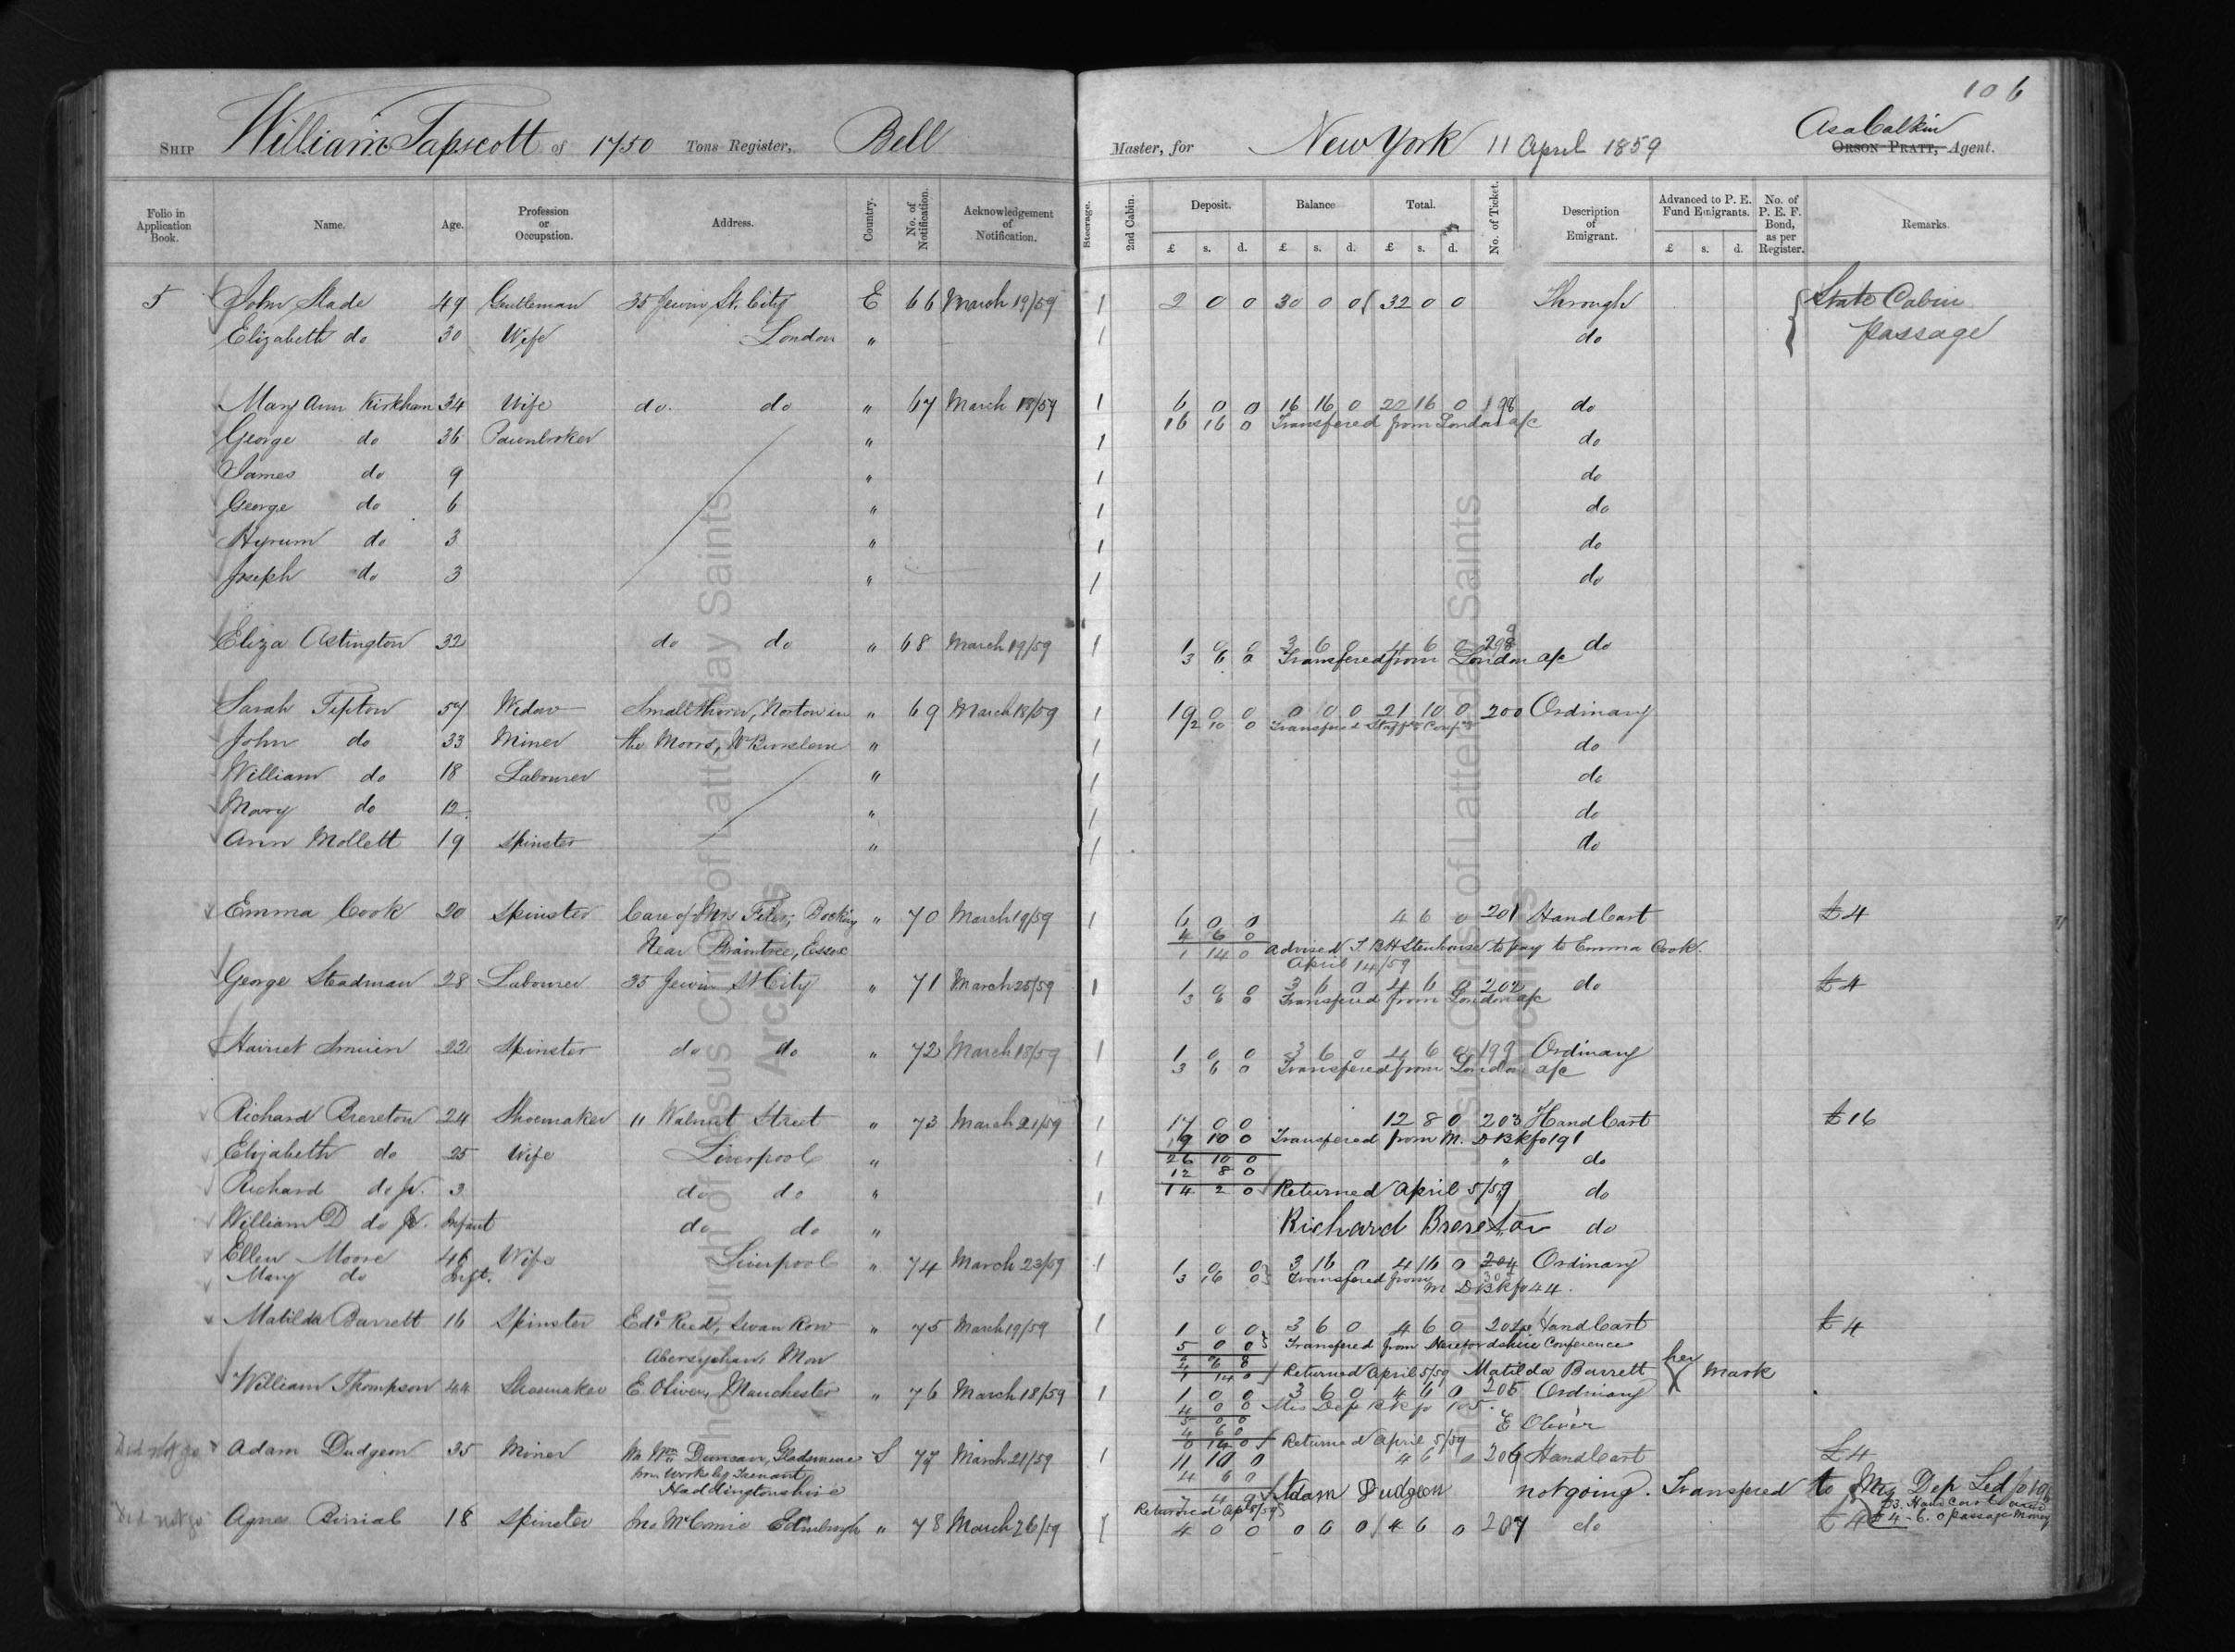 106
Ship William Tapscott of 1750 Tons Register, Bell Master, for New York 11 April 1859 Asa Calkin Orson Pratt, Agent.
Folio in Application Book. Name. Age. Profession or Occupation. Address. Country. No. of Notification. Acknowledgement of Notification. Steerage. 2nd Cabin. Deposit. Balance Total. No. of Ticket. Description of Emigrant. Advanced to P. E. Fund Emigrants. No. of P. E. F. Bond, as per Register. Remarks.
£ s. d. £ s. d. £ s. d. £ s. d.
5 John Slade 49 Gentleman 35 Jewin St. City E 66 March 19/59 1 2 0 0 30 0 0 32 0 0 Through State Cabin
Elizabeth do 30 Wife London " 1 do passage
Mary Ann Kirkham 34 Wife do. do " 67 March 18/59 1 6 0 0 16 16 0 22 16 0 198 do
16 16 0 Transfered from London a/c
George do 36 Pawnbroker " 1 do
James do 9 " 1 do
George do 6 " 1 do
Hyrum do 3 " 1 do
Joseph do 3 " 1 do
Eliza Astington 32 do do " 68 March 19/59 1 1 0 0 3 6 0 4 6 0 do
3 6 0 Transfered from London a/c
Sarah Tipton 57 Widow Smallthorn, Norton in " 69 March 18/59 1 19 0 0 0 0 0 21 10 0 200 Ordinary
2 10 0 Transfered
John do 33 Miner the Moors, Nr Burslem " 1 do
William do 18 Labourer " 1 do
Mary do 12 " 1 do
Ann Mollett 19 Spinster " 1 do
Emma Cook 20 Spinster Care of Mrs Bocking " 70 March 19/59 1 6 0 0 4 6 0 201 Hand Cart £4
4 6 0
Near Braintree, Essex 1 14 0 Advised T. B H Stenhouse to pay to Emma Cook.
April 14/59
George Steadman 28 Labourer 35 Jewin St City " 71 March 25/59 1 1 0 0 3 6 0 4 6 0 202 do £4
3 6 0 Transfered from London a/c
Harriet 22 Spinster do do " 72 March 18/59 1 1 0 0 3 6 0 4 6 0 199 Ordinary
3 6 0 Transfered from London a/c
Richard Brereton 24 Shoemaker 11 Walnut Street " 73 March 21/59 1 17 0 0 12 8 0 203 Hand Cart £16
9 10 0 Transfered from M. D Bk fo 191
Elizabeth do 25 Wife Liverpool " 1 26 10 0 " do
12 8 0
Richard do Jr. 3 do do " 1 14 2 0 Returned April 5/59 do
William D do Jr. Infant do do " Richard Brereton do
Ellen Moore 46 Wife Liverpool " 74 March 23/59 1 1 0 0 3 16 0 4 16 0 204 Ordinary
Mary do Inft. 3 16 0 Transfered from M D Bk fo 44.
Matilda Barrett 16 Spinster Edd Reed, Swan Row " 75 March 19/59 1 1 0 0 3 6 0 4 6 0 204 Hand Cart £4
5 0 0 Transfered from Herefordshire Conference
Abersychan, Mon
1 14 0 Returned April 5/59 Matilda Barrett her mark
William Thompson 44 Shoemaker E. Oliver, Manchester " 76 March 18/59 1 1 0 0 3 6 0 4 6 0 205 Ordinary
4 0 0 Mis Dep Bk fo 105.
5 0 0 E Oliver
4 6 0
0 14 0 Returned April 5/59
Did not go Adam Dudgeon 35 Miner Mr Wm Duncan, Gladsmuir S 77 March 21/59 1 11 10 0 4 6 0 206 Hand Cart £4
Iron Works by Tranent 4 6 0
Haddingtonshire 7 4 0 Adam Dudgeon not going. Transfered to Mis Dep Led fo 196
Returned Apl 5/59 £3. Hand Cart
Did not go Agnes Birrial 18 Spinster Jno McComie Edinburgh " 78 March 26/59 1 4 0 0 0 0 0 4 6 0 207 do £4 £4-6.0 passage money
The Church of Jesus Christ of Latter-day Saints
Archives
The Church of Jesus Christ of Latter-day Saints
Archives